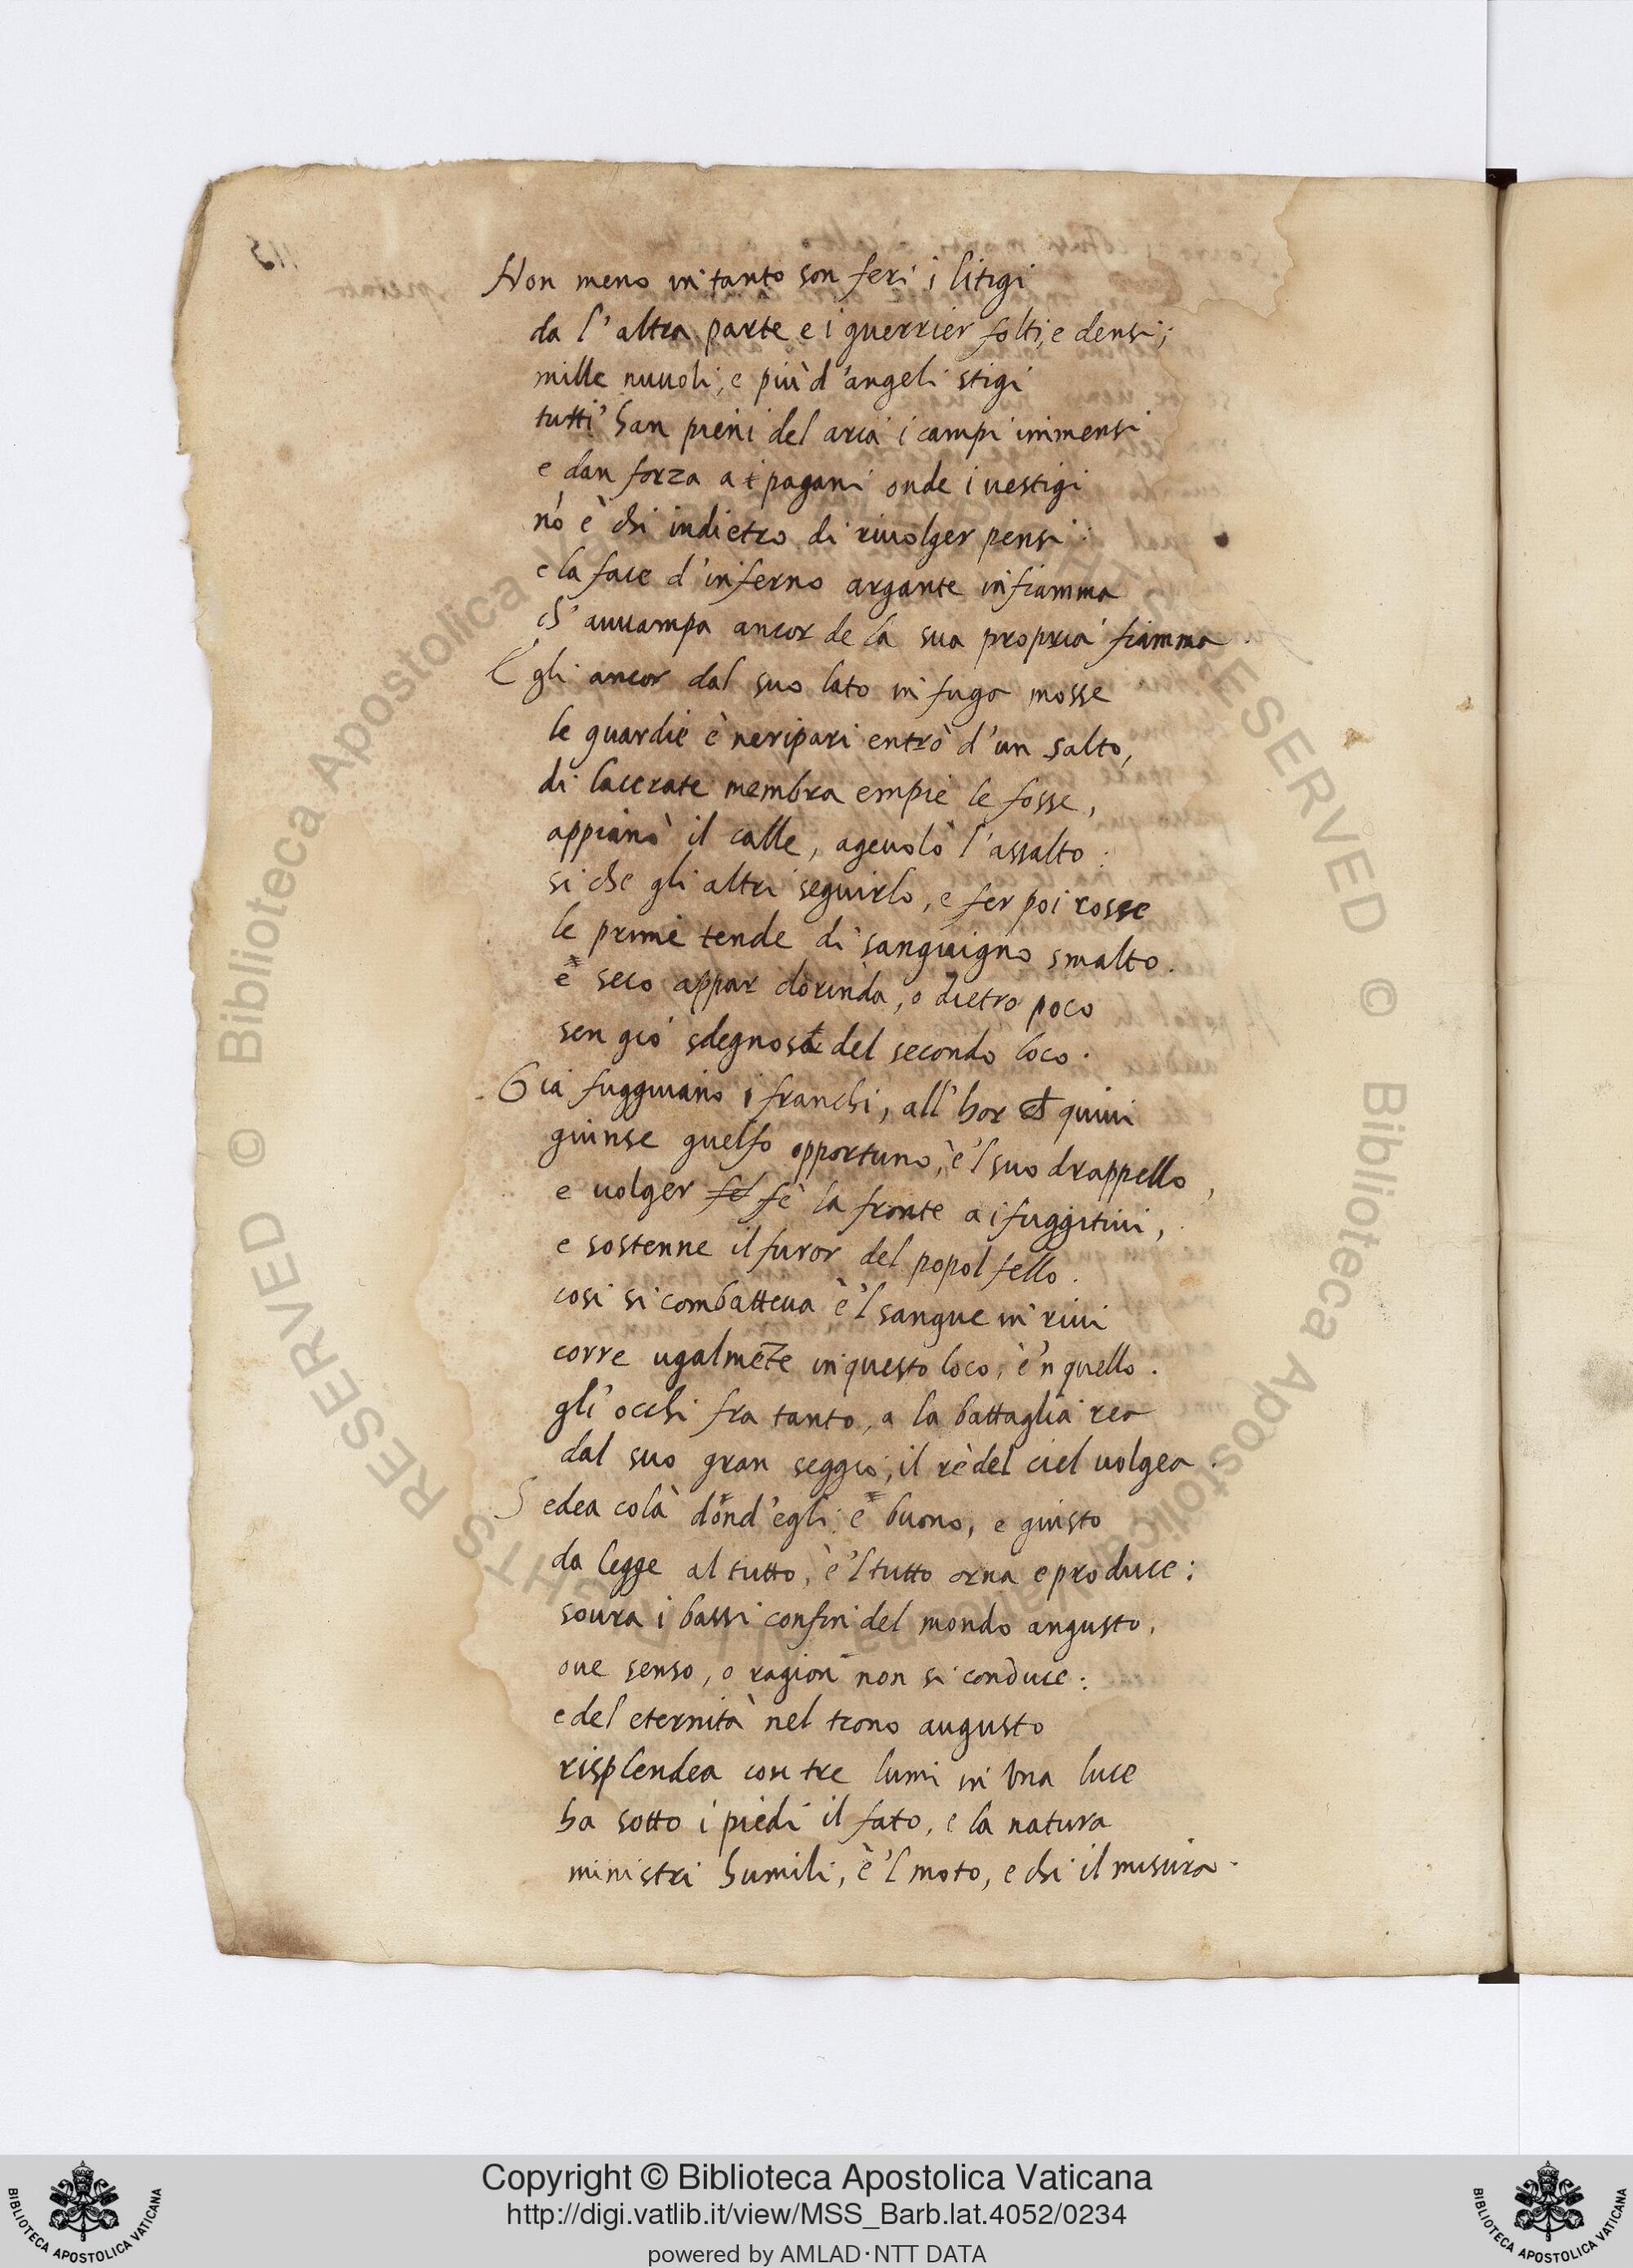 Non meno in tanto son feri i litigi
da l'altra parte e i guerrier folti, e densi;
mille nuuoli, e più d'angeli stigi
tutti han pieni del aria i campi immensi
e dan forza a i pagani onde i uestigi
nó è chi indietro di riuolger pensi:
e la face d'inferno argante infiamma
ch'auuampa ancor de la sua propria fiamma.
Egli ancor dal suo lato in fuga mosse
le guardie è neripari entrò d'un salto,
di lacerate membra empiè le fosse,
appianò il calle, ageuolò l'assalto:
si che gli altri seguirlo, e fer poi rosse
le prime tende di sanguigno smalto.
e seco appar clorinda, o dietro poco
sen gio sdegnosa del secondo loco.
Gia fuggiuano i franchi, all'hor ch quiui
giunse guelfo opportuno, è'l suo drappello,
e uolger fel fè la fronte a i fuggitiui,
e sostenne il furor del popol fello.
cosi si combatteua è'l sangue in riui
corre ugalmēte in questo loco, è'n quello.
gli occhi fra tanto, a la battaglia rea
dal suo gran seggio, il rè del ciel uolgea.
Sedea colà dond'egli e buono, e giusto
da legge al tutto, è'l tutto orna e produce:
soura i bassi confin del mondo angusto,
oue senso, o ragion non si conduce:
e del eternità nel trono augusto
risplendea con tre lumi in una luce
ha sotto i piedi il fato, e la natura
ministri humili, è'l moto, e chi il misura.
Copyright © Biblioteca Apostolica Vaticana
http://digi.vatlib.it/view/MSS_Barb.lat.4052/0234
powered by AMLAD·NTT DATA
BIBLIOTECA APOSTOLICA VATICANA
BIBLIOTECA APOSTOLICA VATICANA